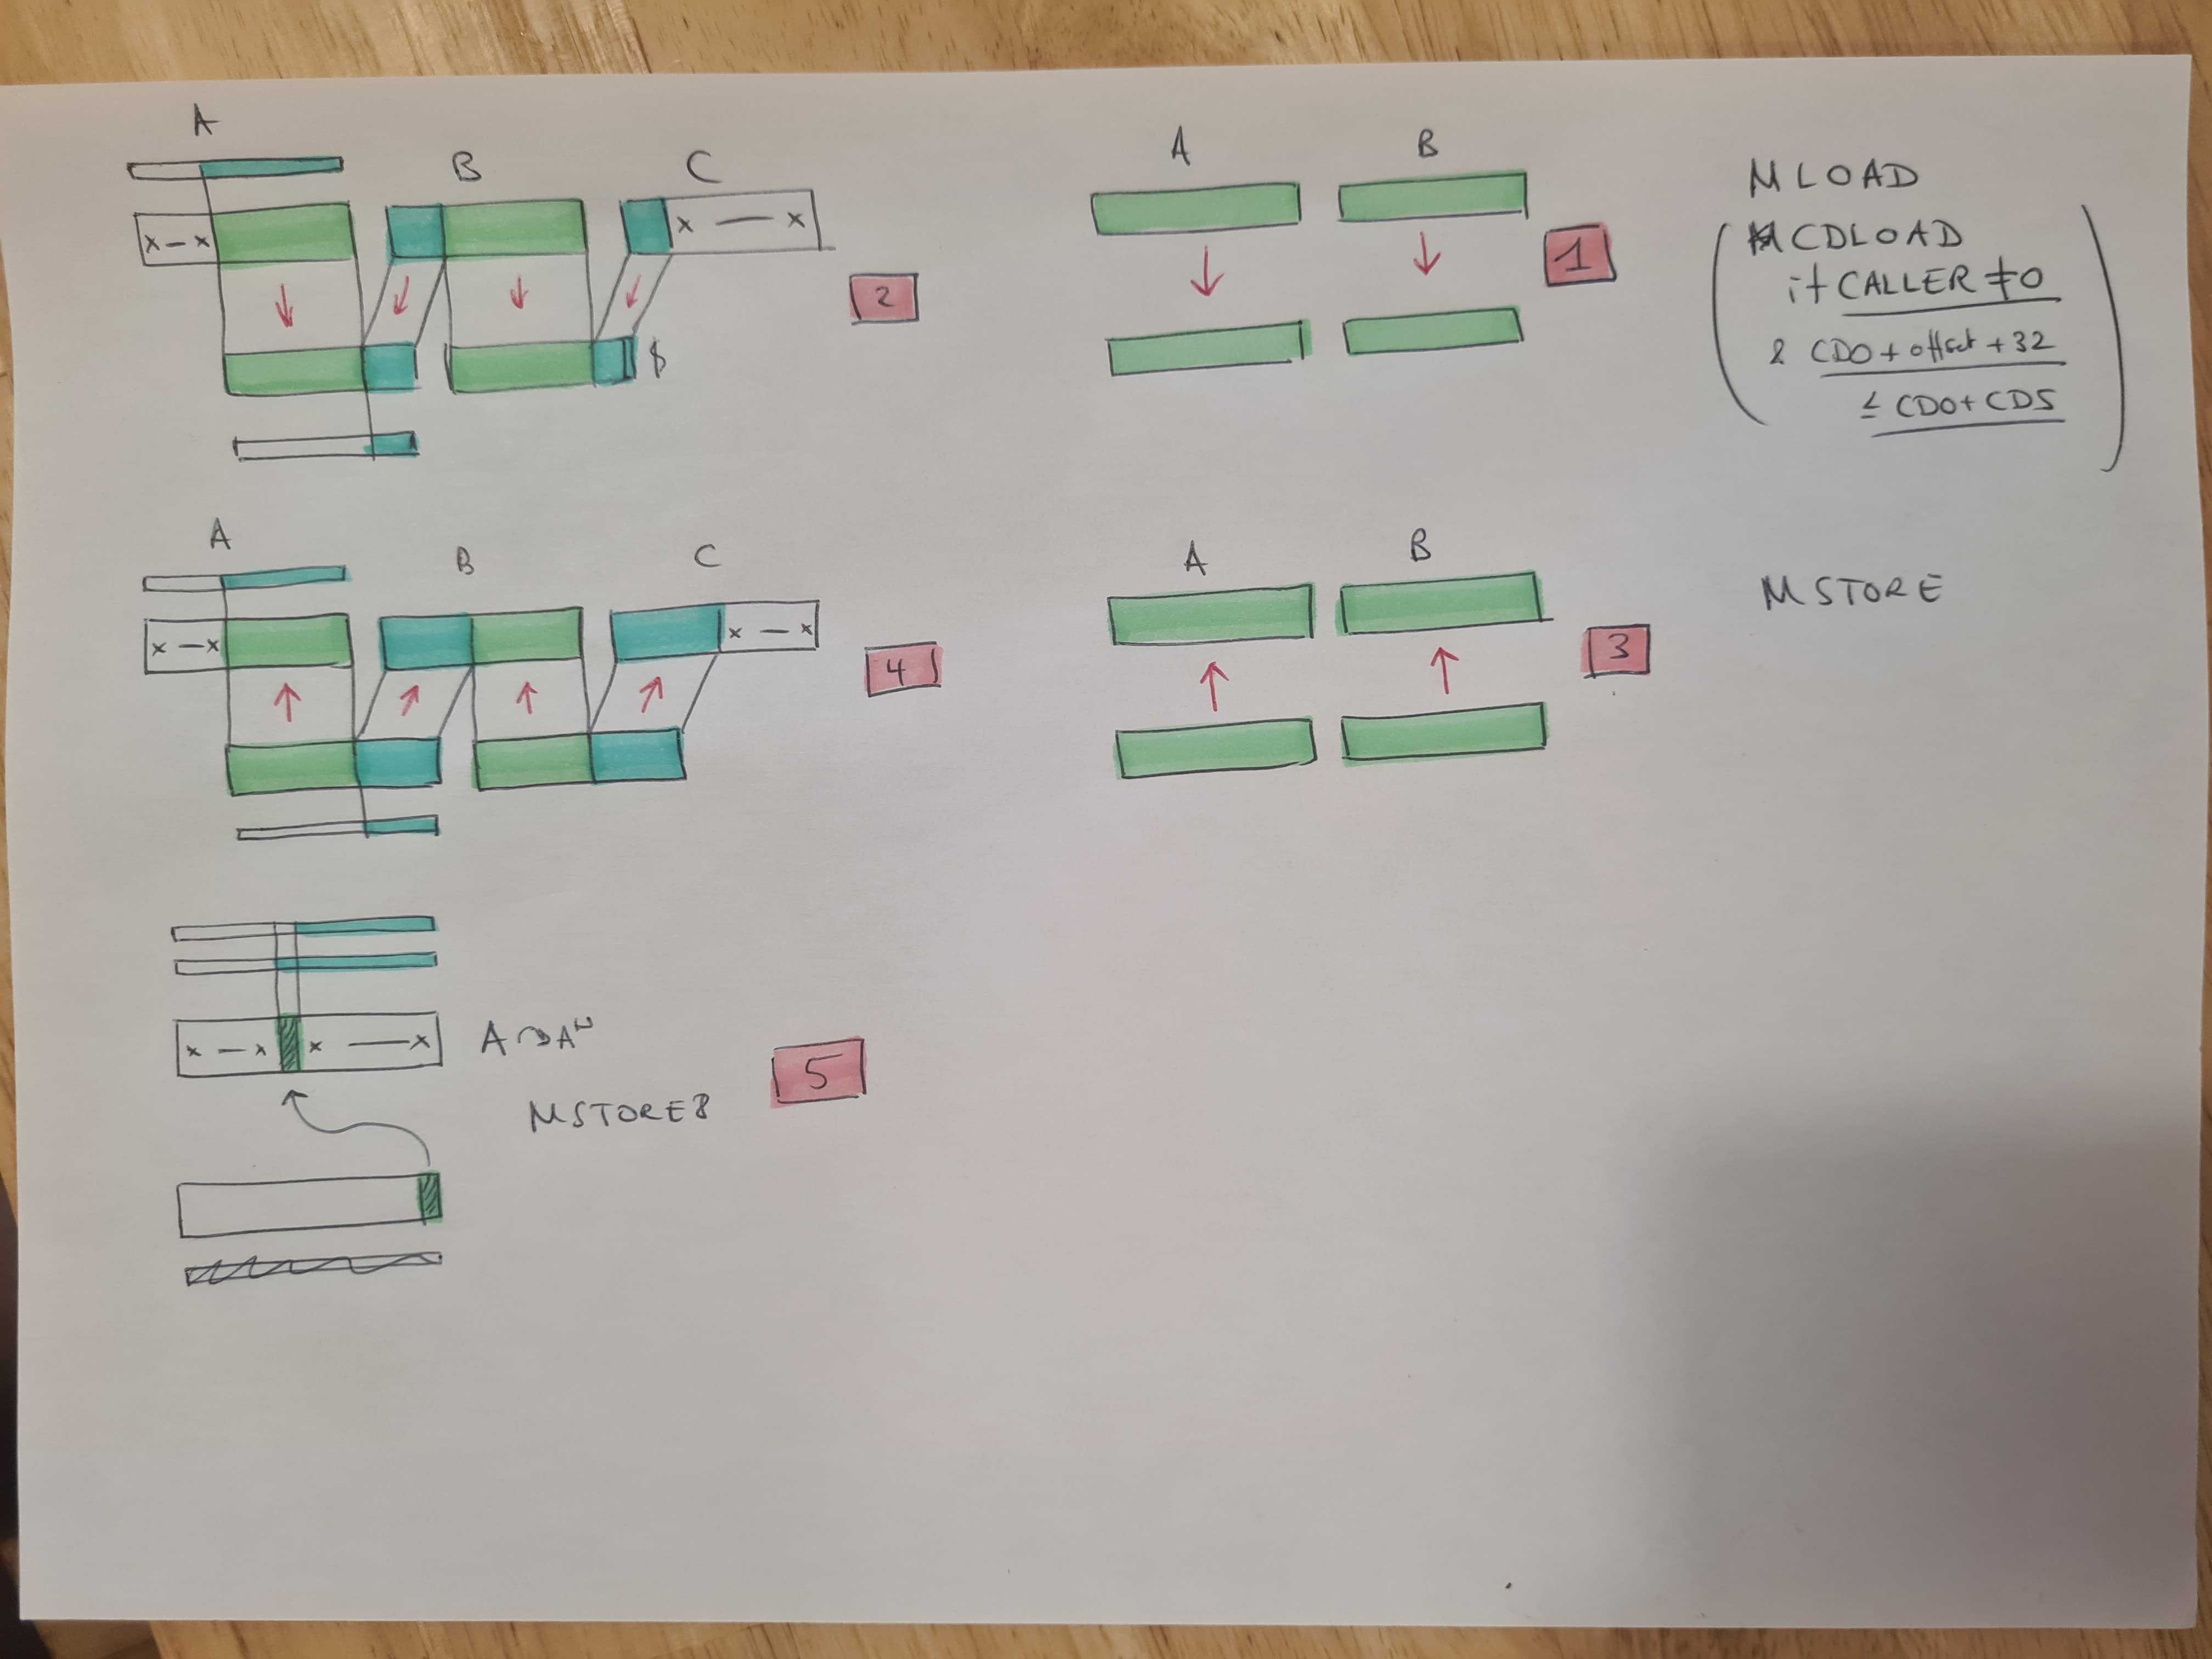 A
B
C
x — x
x — x
2
A
B
1
MLOAD
CDLOAD
if CALLER ≠ 0
& CDO + offset + 32
≤ CDO + CDS
A
B
C
x — x
x — x
4
A
B
3
MSTORE
x — x x — x
5
MSTORE8